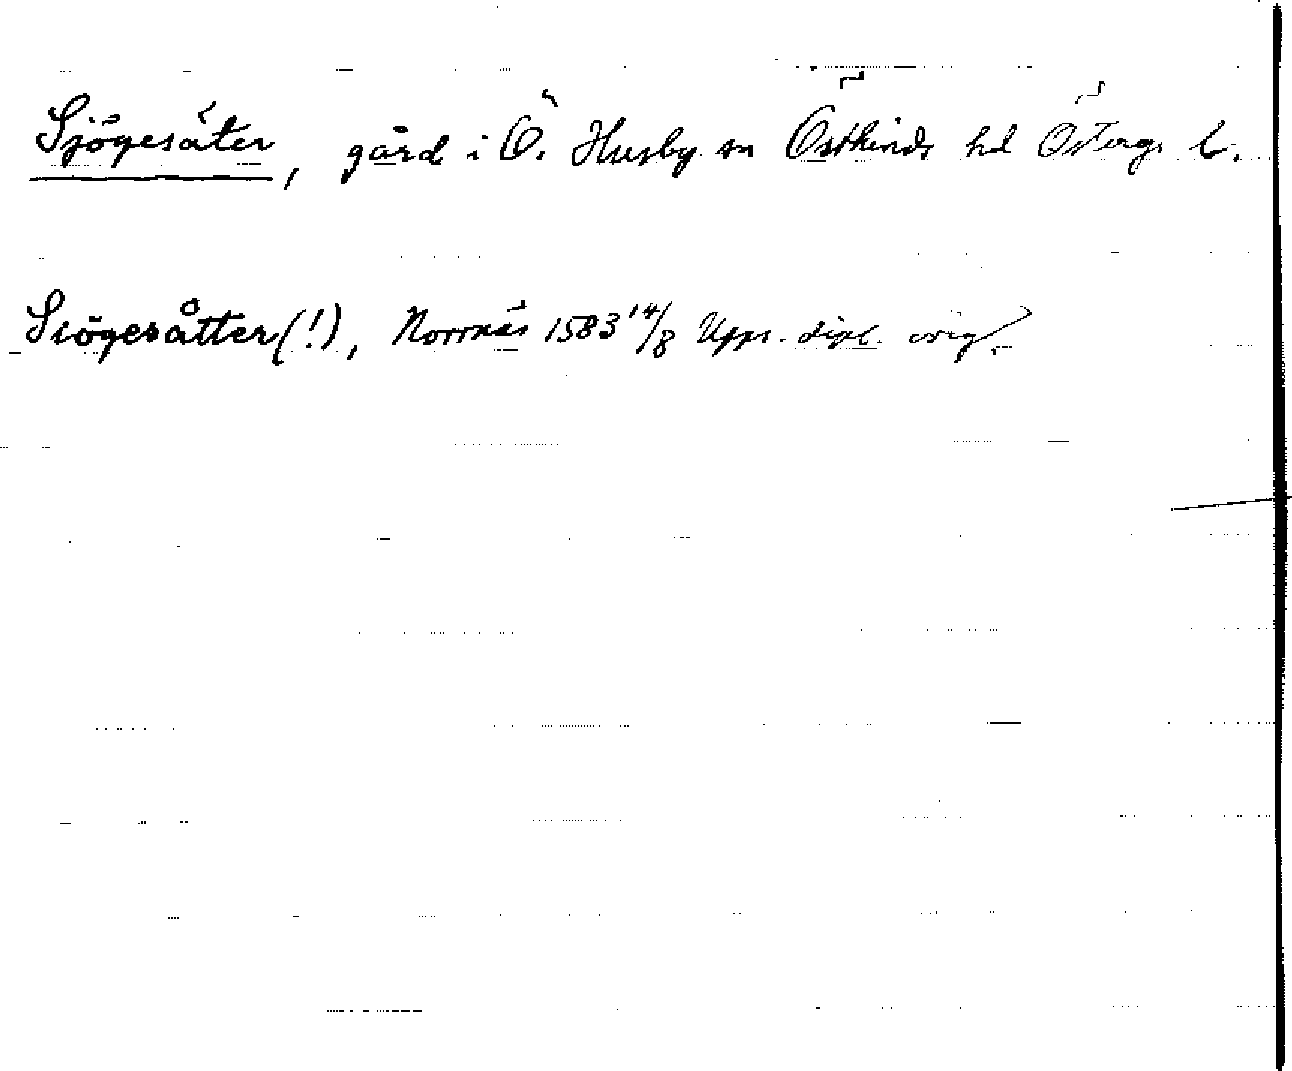 Sjögesäter, gård i Ö. Husby sn Östkinds hd Österg. l.
Siögesåtter(!), Norrnäs 1583 14/8 Upps. dipl. orig.